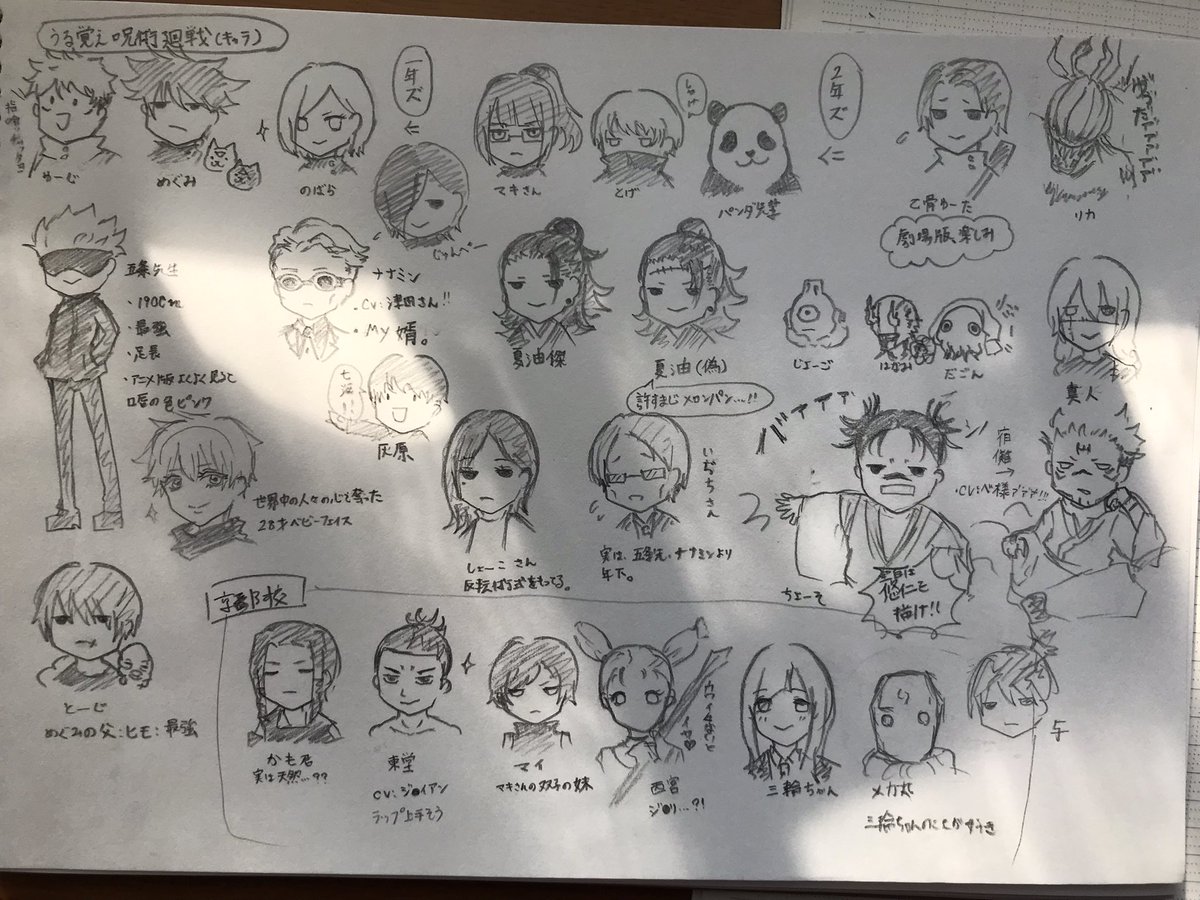 うる覚え呪術廻戦(キャラ)
ゆーじ
めぐみ
のばら
一年ズ
←
じゅんぺー
マキさん
とげ
しゃけ
パンダ先輩
2年ズ
乙骨ゆーた
劇場版楽しみ
リカ
五条先生
・190cm
・最強
・足長
・アニメ版よくよく見ると
口唇の色ピンク
世界中の人々の心を奪った
28才ベビーフェイス
ナナミン
・CV:津田さん!!
・MY婿。
七海!!
灰原
夏油傑
夏油(偽)
許すまじメロンパン…!!
じょーご
はなみ
だごん
真人
しょーこさん
反転術式をもってる。
いぢちさん
実は、五条先・ナナミンより
年下。
ちょーそ
悠仁と
描け!!
宿儺
→
とーじ
めぐみの父:ヒモ:最強
京都校
かも君
実は天然…??
東堂
CV:ジ●イアン
ラップ上手そう
マイ
マキさんの双子の妹
西宮
ジ●リ…?!
三輪ちゃん
メカ丸
与
三輪ちゃんのことがすうき